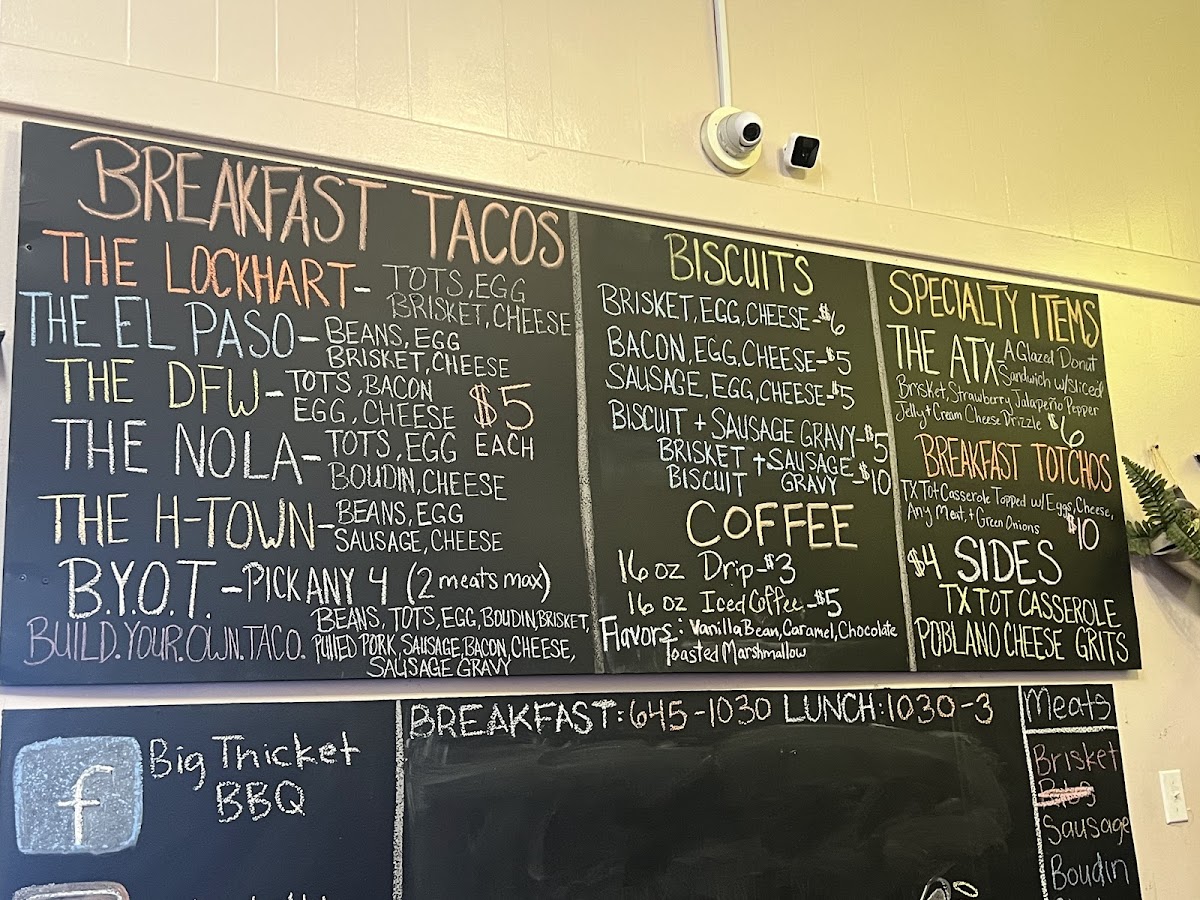 BREAKFAST TACOS
THE LOCKHART- TOTS, EGG
BRISKET, CHEESE
THE EL PASO- BEANS, EGG
BRISKET, CHEESE
THE DFW- TOTS, BACON
EGG, CHEESE
$5
EACH
THE NOLA- TOTS, EGG
BOUDIN, CHEESE
THE H-TOWN- BEANS, EGG
SAUSAGE, CHEESE
B.Y.O.T. - PICK ANY 4 (2 meats max)
BUILD.YOUR.OWN.TACO.
BEANS, TOTS, EGG, BOUDIN, BRISKET,
PULLED PORK, SAUSAGE, BACON, CHEESE,
SAUSAGE GRAVY
BISCUITS
BRISKET, EGG, CHEESE-$6
BACON, EGG, CHEESE-$5
SAUSAGE, EGG, CHEESE-$5
BISCUIT + SAUSAGE GRAVY-$5
BRISKET + SAUSAGE
BISCUIT GRAVY -$10
COFFEE
16 oz Drip-$3
16 oz Iced Coffee-$5
Flavors: Vanilla Bean, Caramel, Chocolate
Toasted Marshmallow
SPECIALTY ITEMS
THE ATX -A Glazed Donut
Sandwich w/Sliced
Brisket, Strawberry, Jalapeño Pepper
Jelly + Cream Cheese Drizzle $6
BREAKFAST TOTCHOS
TX Tot Casserole Topped w/ Eggs, Cheese,
Any Meat, + Green Onions $10
$4 SIDES
TX TOT CASSEROLE
POBLANO CHEESE GRITS
f Big Thicket
BBQ
BREAKFAST: 645-1030 LUNCH: 1030-3
Meats
Brisket
Sausage
Boudin